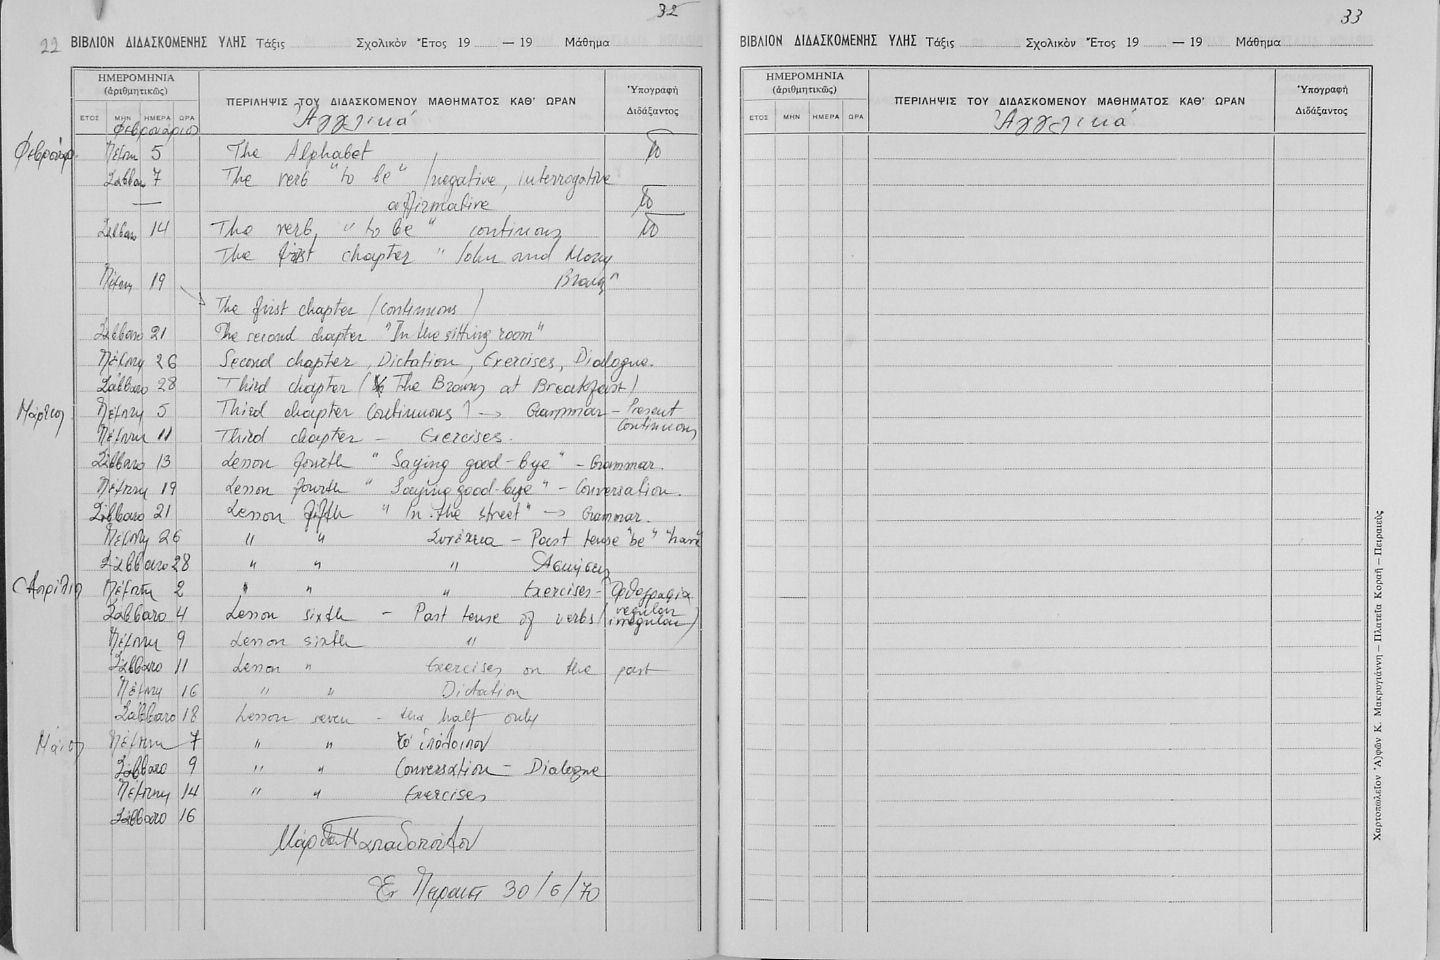 32
22 ΒΙΒΛΙΟΝ ΔΙΔΑΣΚΟΜΕΝΗΣ ΥΛΗΣ Τάξις Σχολικὸν Ἔτος 19 — 19 Μάθημα
ΗΜΕΡΟΜΗΝΙΑ
(ἀριθμητικῶς)
ΠΕΡΙΛΗΨΙΣ ΤΟΥ ΔΙΔΑΣΚΟΜΕΝΟΥ ΜΑΘΗΜΑΤΟΣ ΚΑΘ' ΩΡΑΝ
Ὑπογραφὴ
Διδάξαντος
ΕΤΟΣ ΜΗΝ ΗΜΕΡΑ ΩΡΑ
Ἀγγλικά
Φεβρουάριος
Πέμπτη 5 The Alphabet
Σάββατο 7 The verb "to be" /negative, interrogative
affirmative
Σάββατο 14 The verb "to be" continous
The first chapter "John and Mary
Πέμπτη 19 Brown"
The first chapter (continous)
Σάββατο 21 The second chapter "In the sitting room"
Πέμπτη 26 Second chapter, Dictation, Exercises, Dialogue.
Σάββατο 28 Third chapter (The Browns at Breakfast)
Μάρτιος Πέμπτη 5 Third chapter continous) → Grammar – Present
continous
Πέμπτη 11 Third chapter – Exercises.
Σάββατο 13 Lesson fourth "Saying good-bye" – Grammar.
Πέμπτη 19 Lesson fourth "Saying good-bye" – Conversation.
Σάββατο 21 Lesson fifth "In the street" → Grammar.
Πέμπτη 26 " " Συνέχεια – Past tense "be" "have"
Σάββατο 28 " " " Ἀσκήσεις
Ἀπρίλιος Πέμπτη 2 " " " Exercises – Ὀρθογραφία
Σάββατο 4 Lesson sixth – Past tense of verbs (regular
irregular)
Πέμπτη 9 Lesson sixth "
Σάββατο 11 Lesson " Exercises on the past
Πέμπτη 16 " " Dictation
Σάββατο 18 Lesson seven – the half only
Μάιος Πέμπτη 7 " " τὸ ὑπόλοιπον
Σάββατο 9 " " Conversation – Dialogue
Πέμπτη 14 " " Exercises
Σάββατο 16
Παπαδοπούλου
Ἐν Πειραιεῖ 30/6/70
33
ΒΙΒΛΙΟΝ ΔΙΔΑΣΚΟΜΕΝΗΣ ΥΛΗΣ Τάξις Σχολικὸν Ἔτος 19 — 19 Μάθημα
ΗΜΕΡΟΜΗΝΙΑ
(ἀριθμητικῶς)
ΠΕΡΙΛΗΨΙΣ ΤΟΥ ΔΙΔΑΣΚΟΜΕΝΟΥ ΜΑΘΗΜΑΤΟΣ ΚΑΘ' ΩΡΑΝ
Ὑπογραφὴ
Διδάξαντος
ΕΤΟΣ ΜΗΝ ΗΜΕΡΑ ΩΡΑ
Ἀγγλικά
Χαρτοπωλεῖον Ἀ)φῶν Κ. Μακρυγιάννη — Πλατεῖα Κοραῆ — Πειραιεὺς